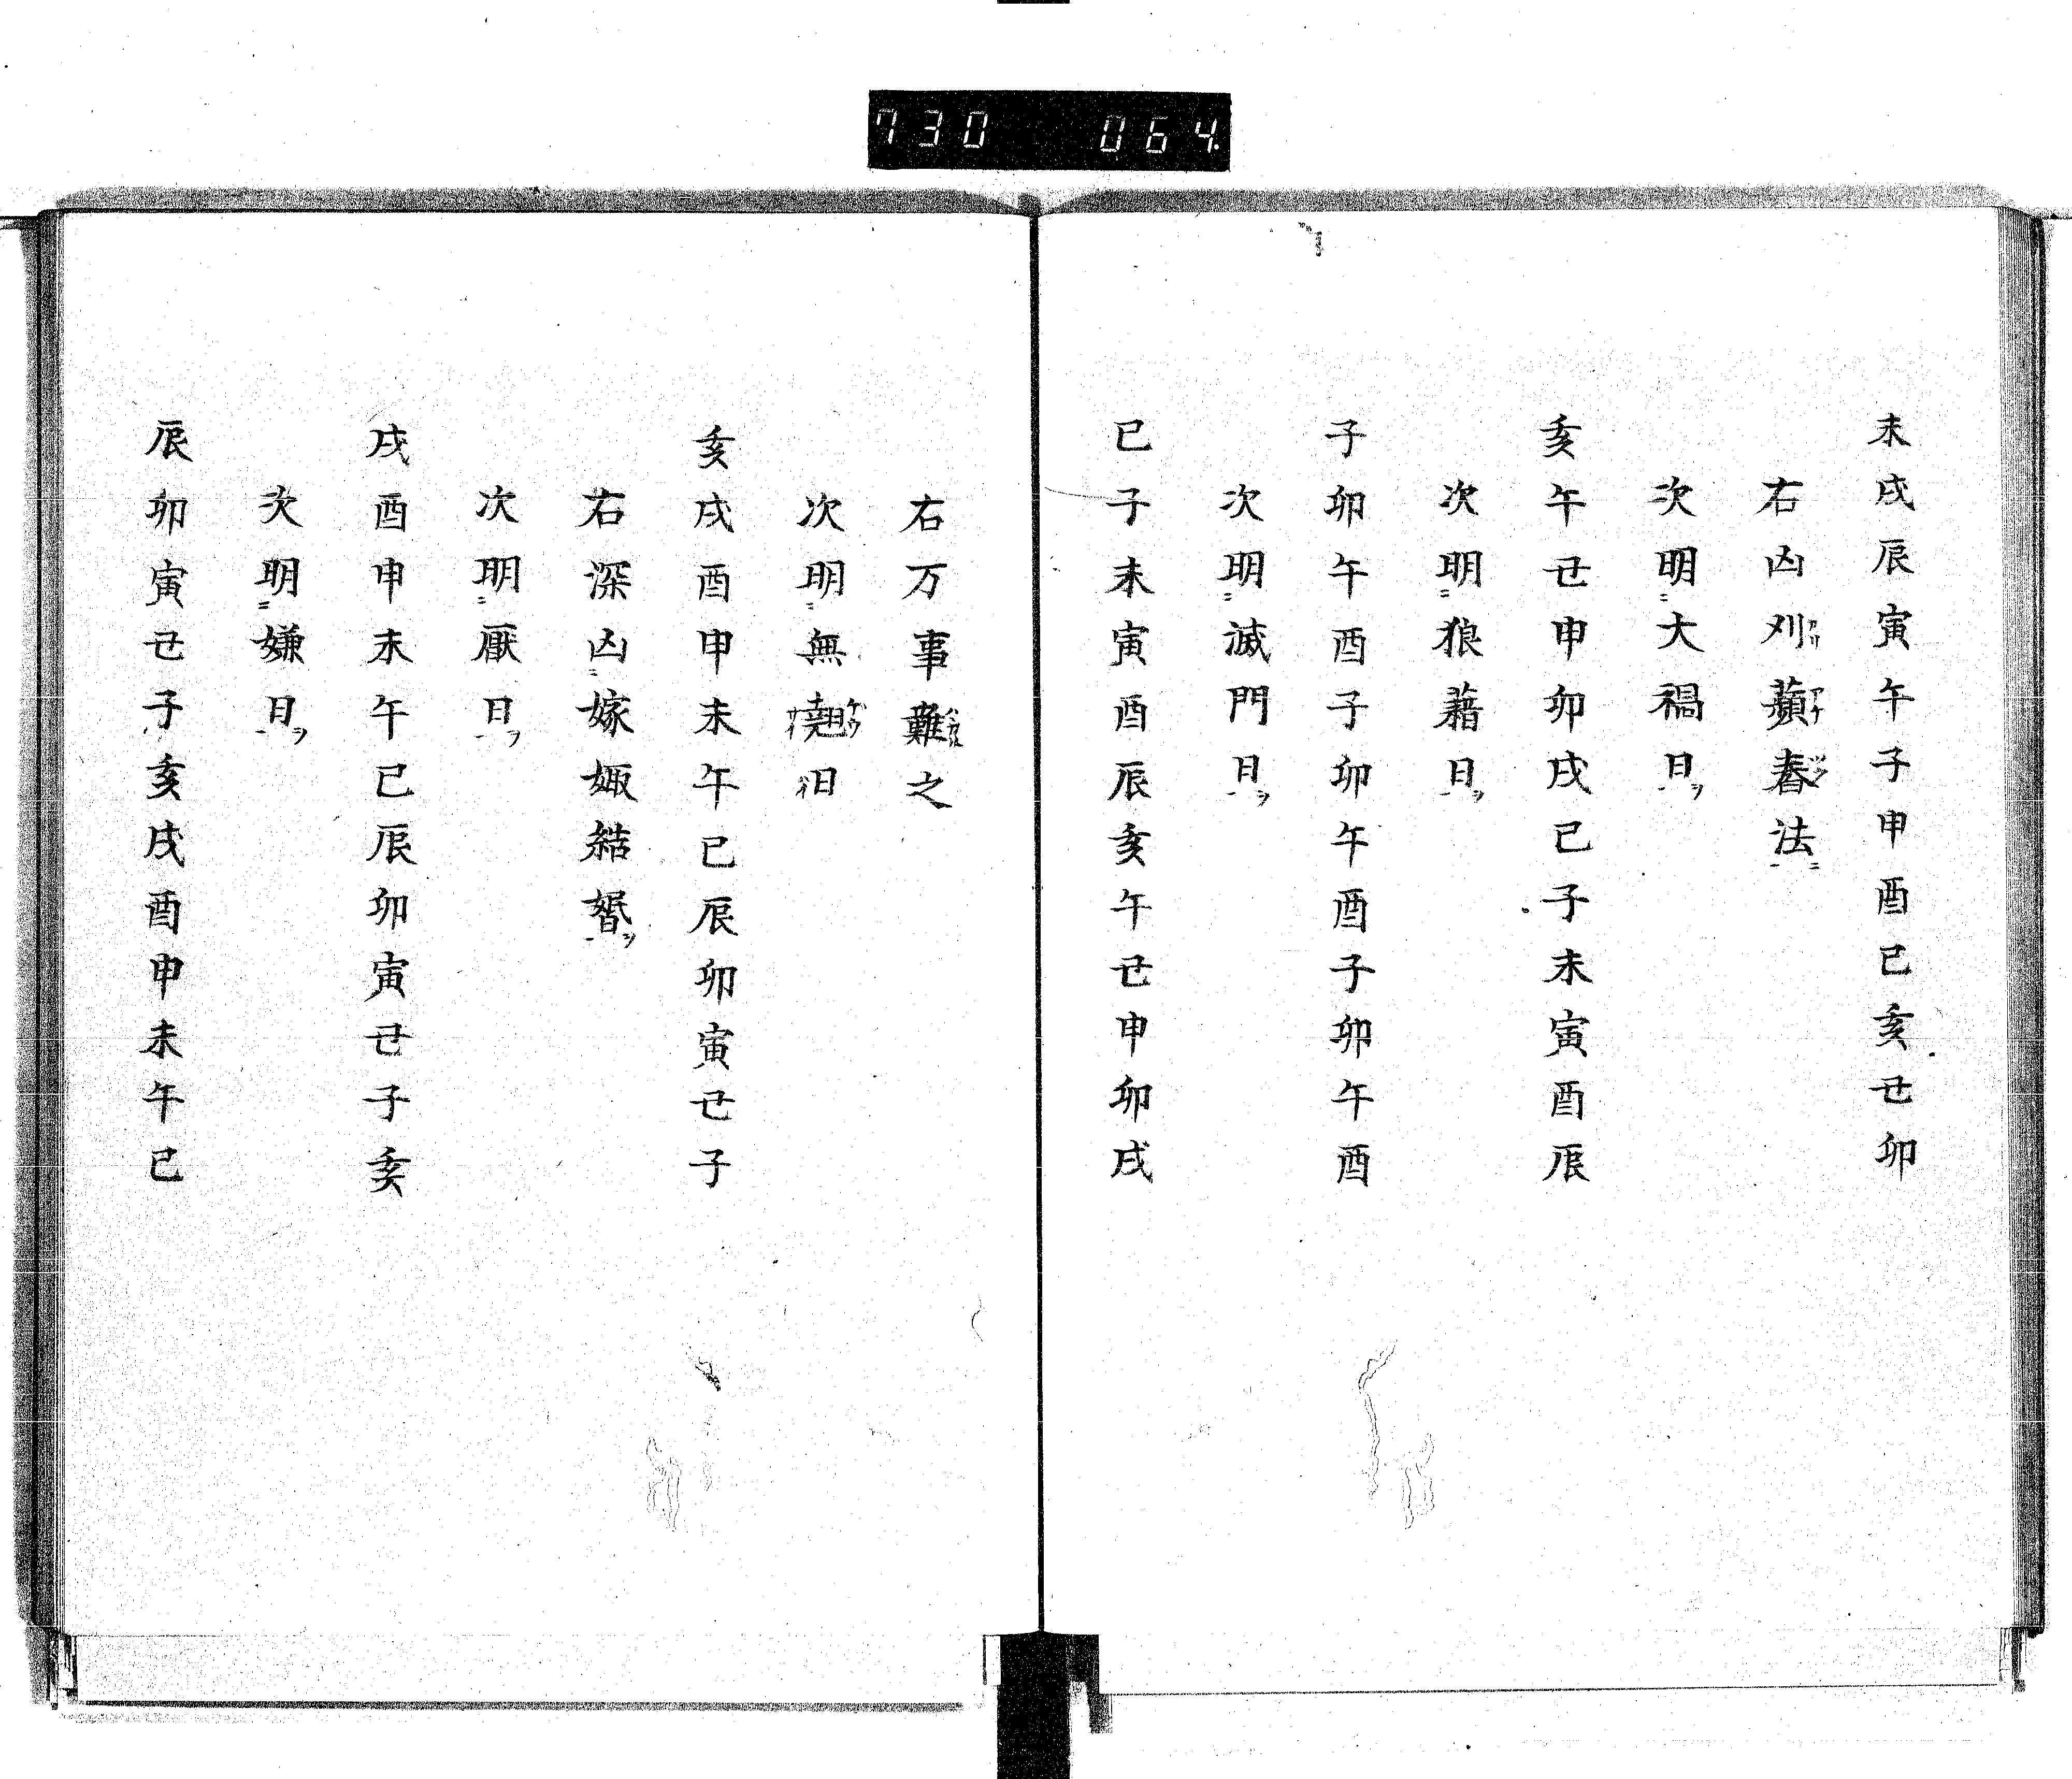 730 064
未戌辰寅午子申酉巳亥丑卯
右凶刈蘋舂法
次明大禍日ヲ
亥午丑申卯戌巳子未寅酉辰
次明狼藉日ヲ
子卯午酉子卯午酉子卯午酉
次明滅門日ヲ
巳子未寅酉辰亥午丑申卯戌
右万事難之
次明無翹日
亥戌酉申未午巳辰卯寅丑子
右深凶嫁娵結婚ヲ
次明厭日ヲ
戌酉申未午巳辰卯寅丑子亥
次明嫌日ヲ
辰卯寅丑子亥戌酉申未午巳